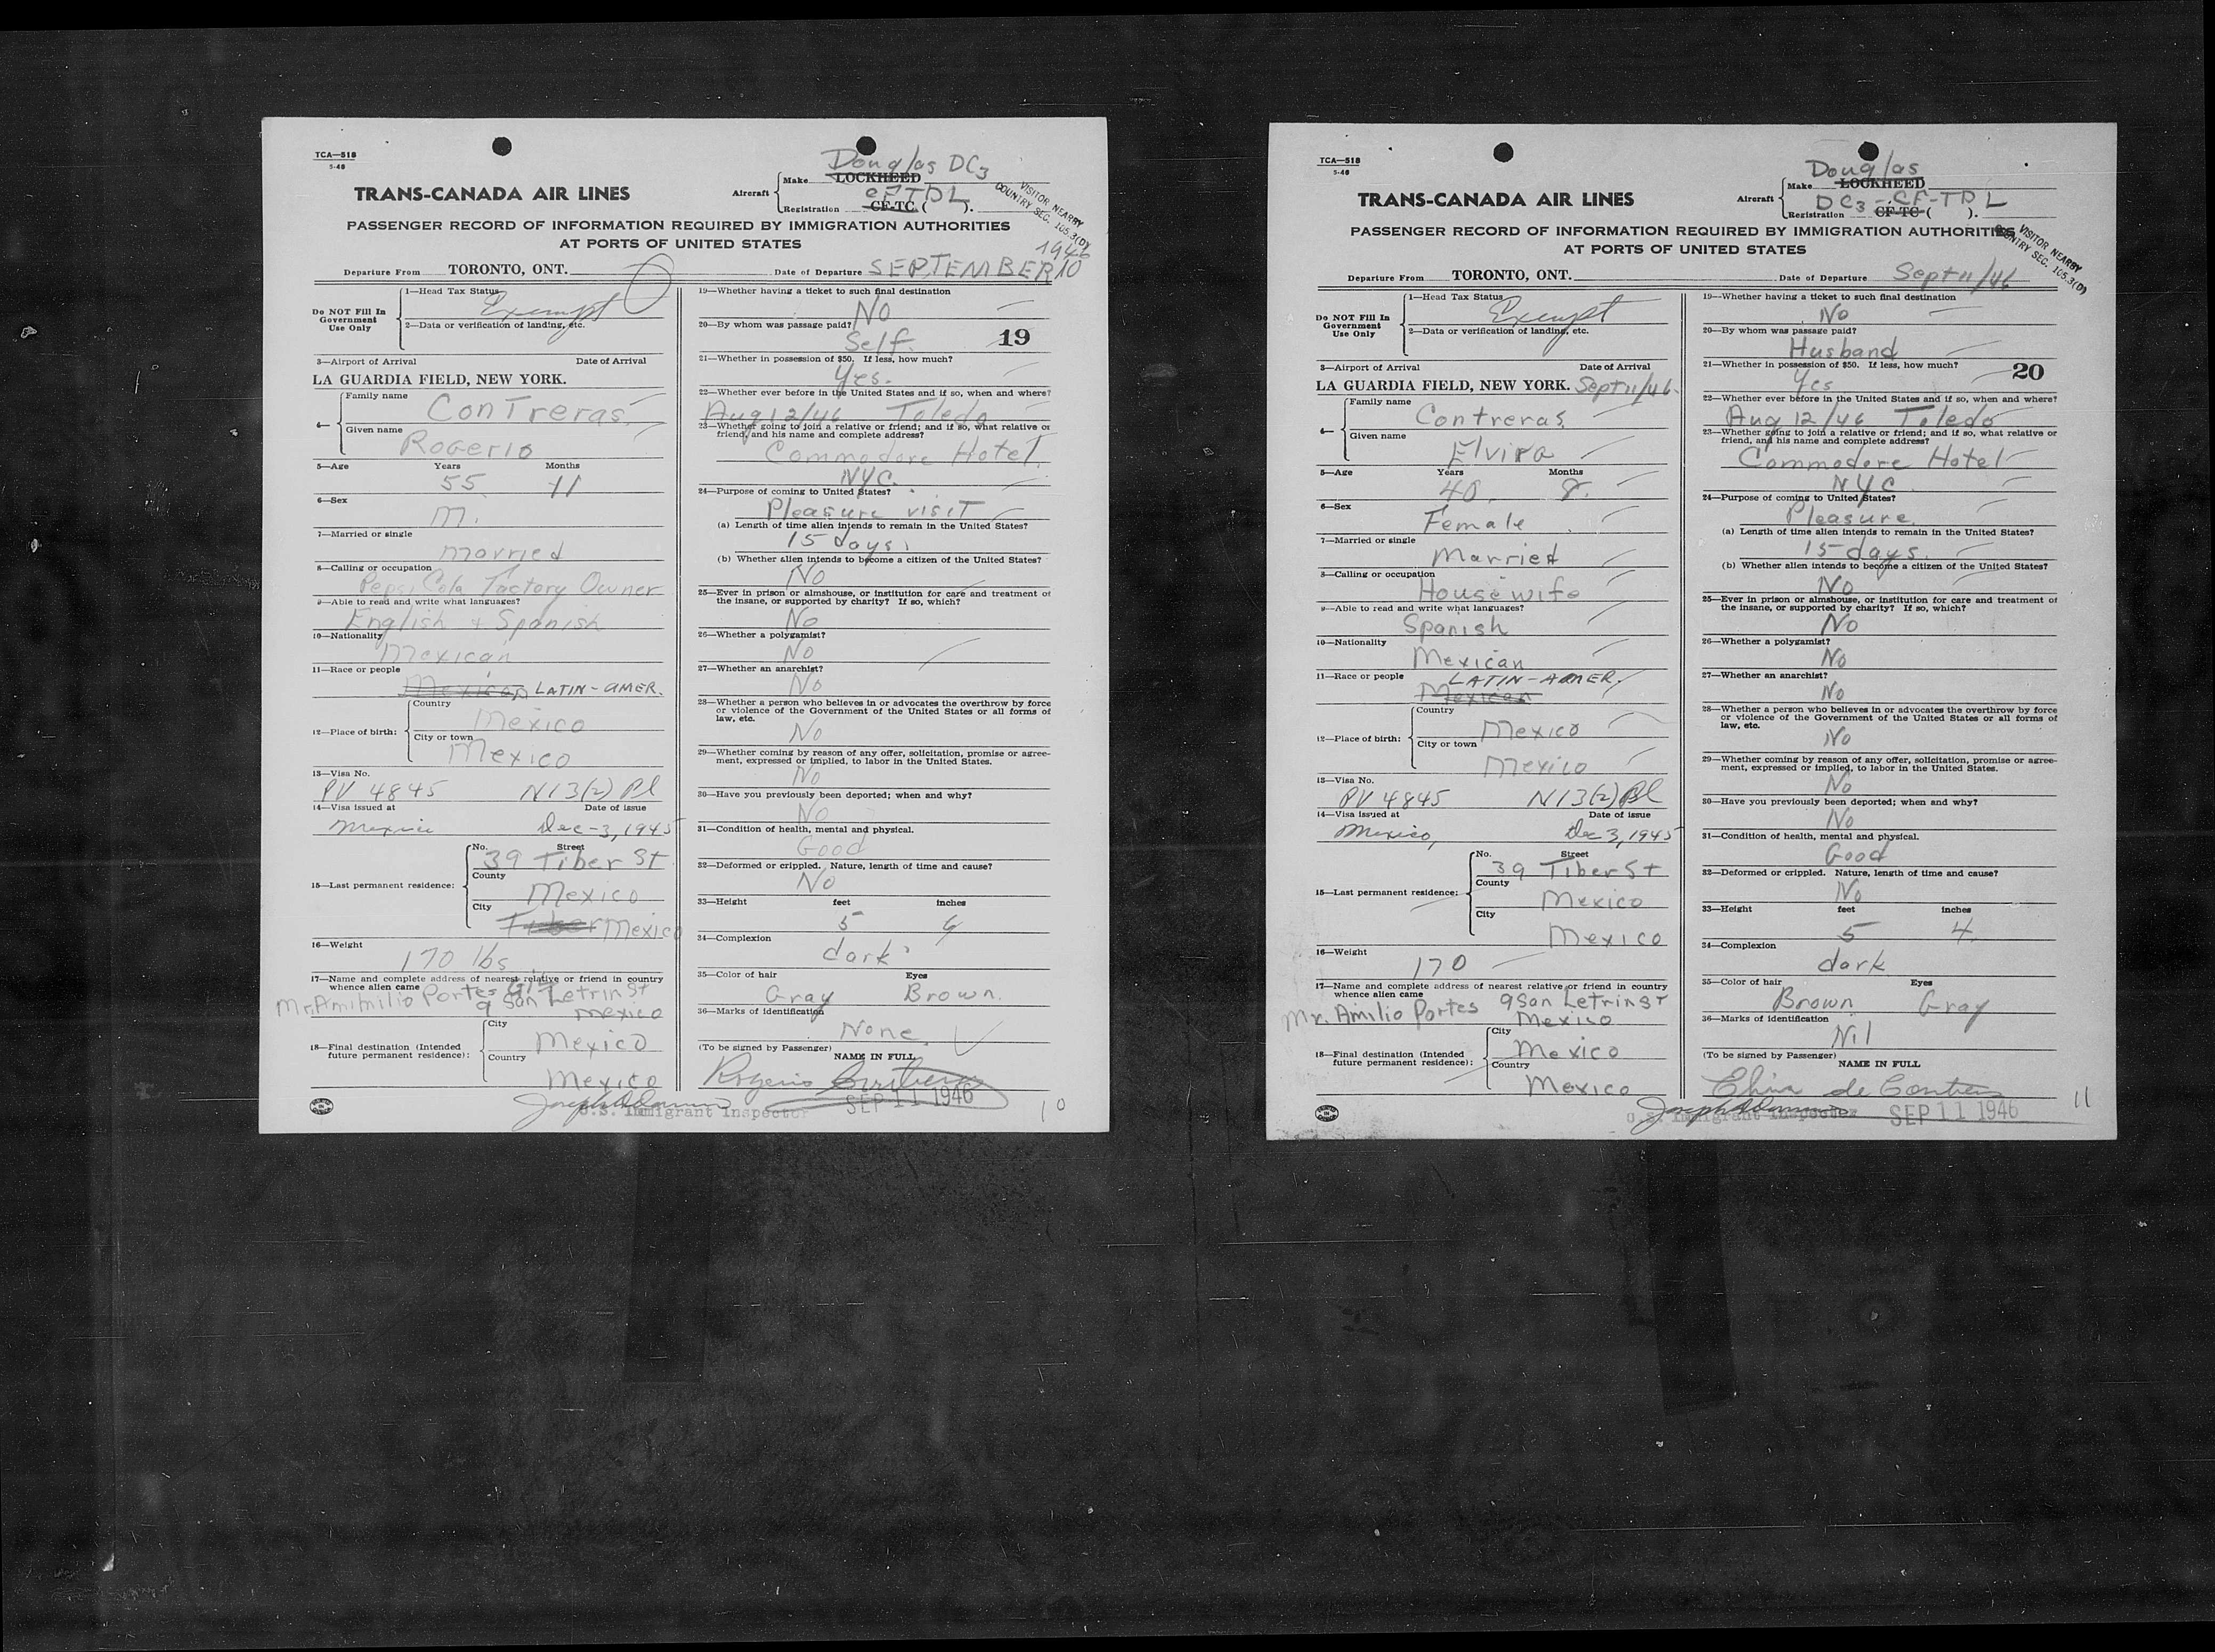 TCA—518
5-46
Douglas DC3
TRANS-CANADA AIR LINES
Aircraft
Make LOCKHEED
CFTDL
Registration CF-TC ( ).
VISITOR NEARBY
COUNTRY SEC. 105.3(D)
PASSENGER RECORD OF INFORMATION REQUIRED BY IMMIGRATION AUTHORITIES
AT PORTS OF UNITED STATES
1946
Departure From TORONTO, ONT. Date of Departure SEPTEMBER 10
Do NOT Fill In
Government
Use Only
1—Head Tax Status
Exempt
2—Data or verification of landing, etc.
3—Airport of Arrival Date of Arrival
LA GUARDIA FIELD, NEW YORK.
4—
Family name
Contreras
Given name
Rogerio
5—Age Years Months
55 11
6—Sex
M.
7—Married or single
Married
8—Calling or occupation
Pepsi Cola Factory Owner
9—Able to read and write what languages?
English + Spanish
10—Nationality
Mexican
11—Race or people
Mexican LATIN-AMER.
12—Place of birth:
Country
Mexico
City or town
Mexico
13—Visa No.
PV 4845 N13(2) Pl
14—Visa issued at Date of issue
Mexico Dec-3, 1945
15—Last permanent residence:
No. Street
39 Tiber St
County
Mexico
City
Tiber Mexico
16—Weight
170 lbs
17—Name and complete address of nearest relative or friend in country
whence alien came
Mr. Amimilio Portes Gil
9 San Letrin St
Mexico
18—Final destination (Intended
future permanent residence):
City
Mexico
Country
Mexico
19—Whether having a ticket to such final destination
No
20—By whom was passage paid?
Self.
19
21—Whether in possession of $50. If less, how much?
Yes.
22—Whether ever before in the United States and if so, when and where?
Aug 12/46 Toledo
23—Whether going to join a relative or friend; and if so, what relative or
friend, and his name and complete address?
Commodore Hotel.
NYC.
24—Purpose of coming to United States?
Pleasure visit
(a) Length of time alien intends to remain in the United States?
15 days.
(b) Whether alien intends to become a citizen of the United States?
No
25—Ever in prison or almshouse, or institution for care and treatment of
the insane, or supported by charity? If so, which?
No
26—Whether a polygamist?
No
27—Whether an anarchist?
No
28—Whether a person who believes in or advocates the overthrow by force
or violence of the Government of the United States or all forms of
law, etc.
No
29—Whether coming by reason of any offer, solicitation, promise or agree-
ment, expressed or implied, to labor in the United States.
No
30—Have you previously been deported; when and why?
No
31—Condition of health, mental and physical.
Good
32—Deformed or crippled. Nature, length of time and cause?
No
33—Height feet inches
5
34—Complexion
dark
35—Color of hair Eyes
Gray Brown.
36—Marks of identification
None.
(To be signed by Passenger)
NAME IN FULL
Rogerio Contreras
U.S. Immigrant Inspector
SEP 11 1946
10
TCA—518
5-46
Douglas
TRANS-CANADA AIR LINES
Aircraft
Make LOCKHEED
DC3 - CF-TDL
Registration CF-TC ( ).
VISITOR NEARBY
COUNTRY SEC. 105.3(D)
PASSENGER RECORD OF INFORMATION REQUIRED BY IMMIGRATION AUTHORITIES
AT PORTS OF UNITED STATES
Departure From TORONTO, ONT. Date of Departure Sept 11/46
Do NOT Fill In
Government
Use Only
1—Head Tax Status
Exempt
2—Data or verification of landing, etc.
3—Airport of Arrival Date of Arrival
LA GUARDIA FIELD, NEW YORK. Sept 11/46.
4—
Family name
Contreras
Given name
Elvira
5—Age Years Months
40 8.
6—Sex
Female
7—Married or single
Married
8—Calling or occupation
Housewife
9—Able to read and write what languages?
Spanish
10—Nationality
Mexican
11—Race or people LATIN-AMER.
Mexican
12—Place of birth:
Country
Mexico
City or town
Mexico
13—Visa No.
PV 4845 N13(2) Pl
14—Visa issued at Date of issue
Mexico, Dec 3, 1945
15—Last permanent residence:
No. Street
39 Tiber St
County
Mexico
City
Mexico
16—Weight
170
17—Name and complete address of nearest relative or friend in country
whence alien came
Mr. Amilio Portes 9 San Letrin St
Mexico
18—Final destination (Intended
future permanent residence):
City
Mexico
Country
Mexico
19—Whether having a ticket to such final destination
No
20—By whom was passage paid?
Husband
21—Whether in possession of $50. If less, how much?
Yes
20
22—Whether ever before in the United States and if so, when and where?
Aug 12/46 Toledo
23—Whether going to join a relative or friend; and if so, what relative or
friend, and his name and complete address?
Commodore Hotel
NYC
24—Purpose of coming to United States?
Pleasure.
(a) Length of time alien intends to remain in the United States?
15 days.
(b) Whether alien intends to become a citizen of the United States?
No
25—Ever in prison or almshouse, or institution for care and treatment of
the insane, or supported by charity? If so, which?
No
26—Whether a polygamist?
No
27—Whether an anarchist?
No
28—Whether a person who believes in or advocates the overthrow by force
or violence of the Government of the United States or all forms of
law, etc.
No
29—Whether coming by reason of any offer, solicitation, promise or agree-
ment, expressed or implied, to labor in the United States.
No
30—Have you previously been deported; when and why?
No
31—Condition of health, mental and physical.
Good
32—Deformed or crippled. Nature, length of time and cause?
No
33—Height feet inches
5 4
34—Complexion
dark
35—Color of hair Eyes
Brown Gray
36—Marks of identification
Nil
(To be signed by Passenger)
NAME IN FULL
Elvira de Contreras
U.S. Immigrant Inspector
SEP 11 1946
11